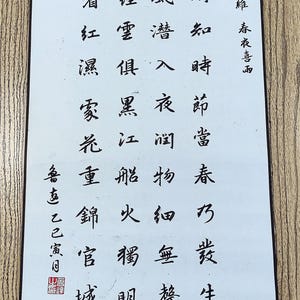 維 春夜喜雨
雨知時節當春乃發生
風潛入夜潤物細無聲
徑雲俱黑江船火獨明
看紅濕處花重錦官城
魯直乙巳寅月